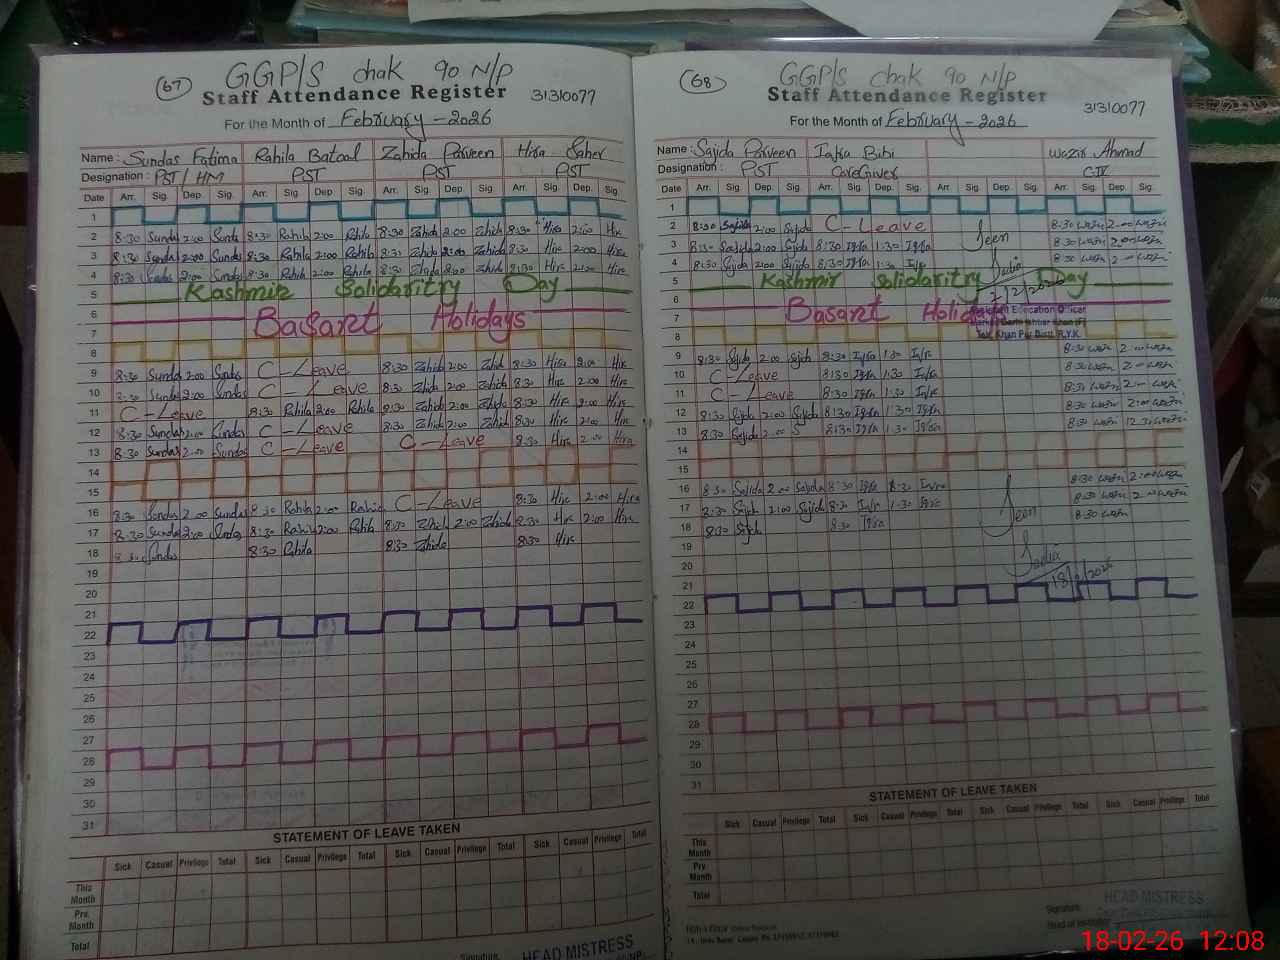 67
GGP/S chak 90 N/P
Staff Attendance Register
31310077
For the Month of February - 2026
Name : Sundas Fatima Rahila Batool Zahida Parveen Hira Saher
Designation : PST/HM PST PST PST
Date Arr. Sig. Dep. Sig. Arr. Sig. Dep. Sig. Arr. Sig. Dep. Sig. Arr. Sig. Dep. Sig.
1
2 8:30 2:00 8:30 Rahila 2:00 Rahila 8:30 Zahid 2:00 Zahid 8:30 Hira 2:00 Hir
3 8:30 Sundas 2:00 Sundas 8:30 Rahila 2:00 Rahila 8:30 Zahida 2:00 Zahida 8:30 Hira 2:00 Hir
4 8:30 Sundas 2:00 Sundas 8:30 Rahila 2:00 Rahila 8:30 Zahida 2:00 Zahida 8:30 Hira 2:00 Hir
5 Kashmir Solidaritry Day
6 Basant Holidays
7
8
9 8:30 Sundas 2:00 Sundas C-Leave 8:30 Zahid 2:00 Zahid 8:30 Hira 2:00 Hir
10 8:30 Sundas 2:00 Sundas C-Leave 8:30 Zahid 2:00 Zahid 8:30 Hir 2:00 Hir
11 C-Leave 8:30 Rahila 2:00 Rahila 8:30 Zahid 2:00 Zahid 8:30 Hir 2:00 Hir
12 8:30 Sundas 2:00 Sundas C-Leave 8:30 Zahid 2:00 Zahid 8:30 Hir 2:00 Hir
13 8:30 Sundas 2:00 Sundas C-Leave C-Leave 8:30 Hir 2:00 Hira
14
15
16 8:30 Sundas 2:00 Sundas 8:30 Rahila 2:00 C-Leave 8:30 Hir 2:00 Hira
17 8:30 Sundas 2:00 Sundas 8:30 Rahila 2:00 Rahila 8:30 Zahid 2:00 Zahid 8:30 Hir 2:00 Hira
18 8:30 Sundas 8:30 Rahila 8:30 Zahida 8:30 Hir
19
20
21
22
23
24
25
26
27
28
29
30
31
STATEMENT OF LEAVE TAKEN
Sick Casual Privilege Total Sick Casual Privilege Total Sick Casual Privilege Total Sick Casual Privilege Total
This Month
Prv. Month
Total
Signature:
HEAD MISTRESS
68
GGP/S chak 90 N/P
Staff Attendance Register
31310077
For the Month of February - 2026
Name : Sajida Parveen Iqra Bibi Wazir Ahmad
Designation : PST CareGiver C-IV
Date Arr. Sig. Dep. Sig. Arr. Sig. Dep. Sig. Arr. Sig. Dep. Sig. Arr. Sig. Dep. Sig.
1
2 8:30 Sajida 2:00 Sajida C-Leave 8:30 Wazir 2:00 Wazir
3 8:30 Sajida 2:00 Sajida 8:30 Iqra 1:30 Iqra Seen 8:30 Wazir 2:00 Wazir
4 8:30 Sajida 2:00 Sajida 8:30 Iqra 1:30 Iqra Sadia 8:30 Wazir 2:00 Wazir
5 Kashmir Solidaritry Day
6 Basant Holidays
Assistant Education Officer
7
Teh. Khan Pur Distt. R.Y.K
8
9 8:30 Sajida 2:00 Sajida 8:30 Iqra 1:30 Iqra 8:30 Wazir 2:00 Wazir
10 C-Leave 8:30 Iqra 1:30 Iqra 8:30 Wazir 2:00 Wazir
11 C-Leave 8:30 Iqra 1:30 Iqra 8:30 Wazir 2:00 Wazir
12 8:30 Sajida 2:00 Sajida 8:30 Iqra 1:30 Iqra 8:30 Wazir 2:00 Wazir
13 8:30 Sajida 2:00 S 8:30 Iqra 1:30 Iqra 8:30 Wazir 12:30 Wazir
14
15
16 8:30 Sajida 2:00 Sajida 8:30 Iqra Iqra 8:30 Wazir 2:00 Wazir
17 8:30 Sajida 2:00 Sajida 8:30 Iqra 1:30 Iqra Seen 8:30 Wazir 2:00 Wazir
18 8:30 Sajida 8:30 Iqra 8:30 Wazir
19
20 Sadia
21 18/2/2026
22
23
24
25
26
27
28
29
30
31
STATEMENT OF LEAVE TAKEN
Sick Casual Privilege Total Sick Casual Privilege Total Sick Casual Privilege Total Sick Casual Privilege Total
This Month
Prv. Month
Total
Signature:
HEAD MISTRESS
18-02-26 12:08